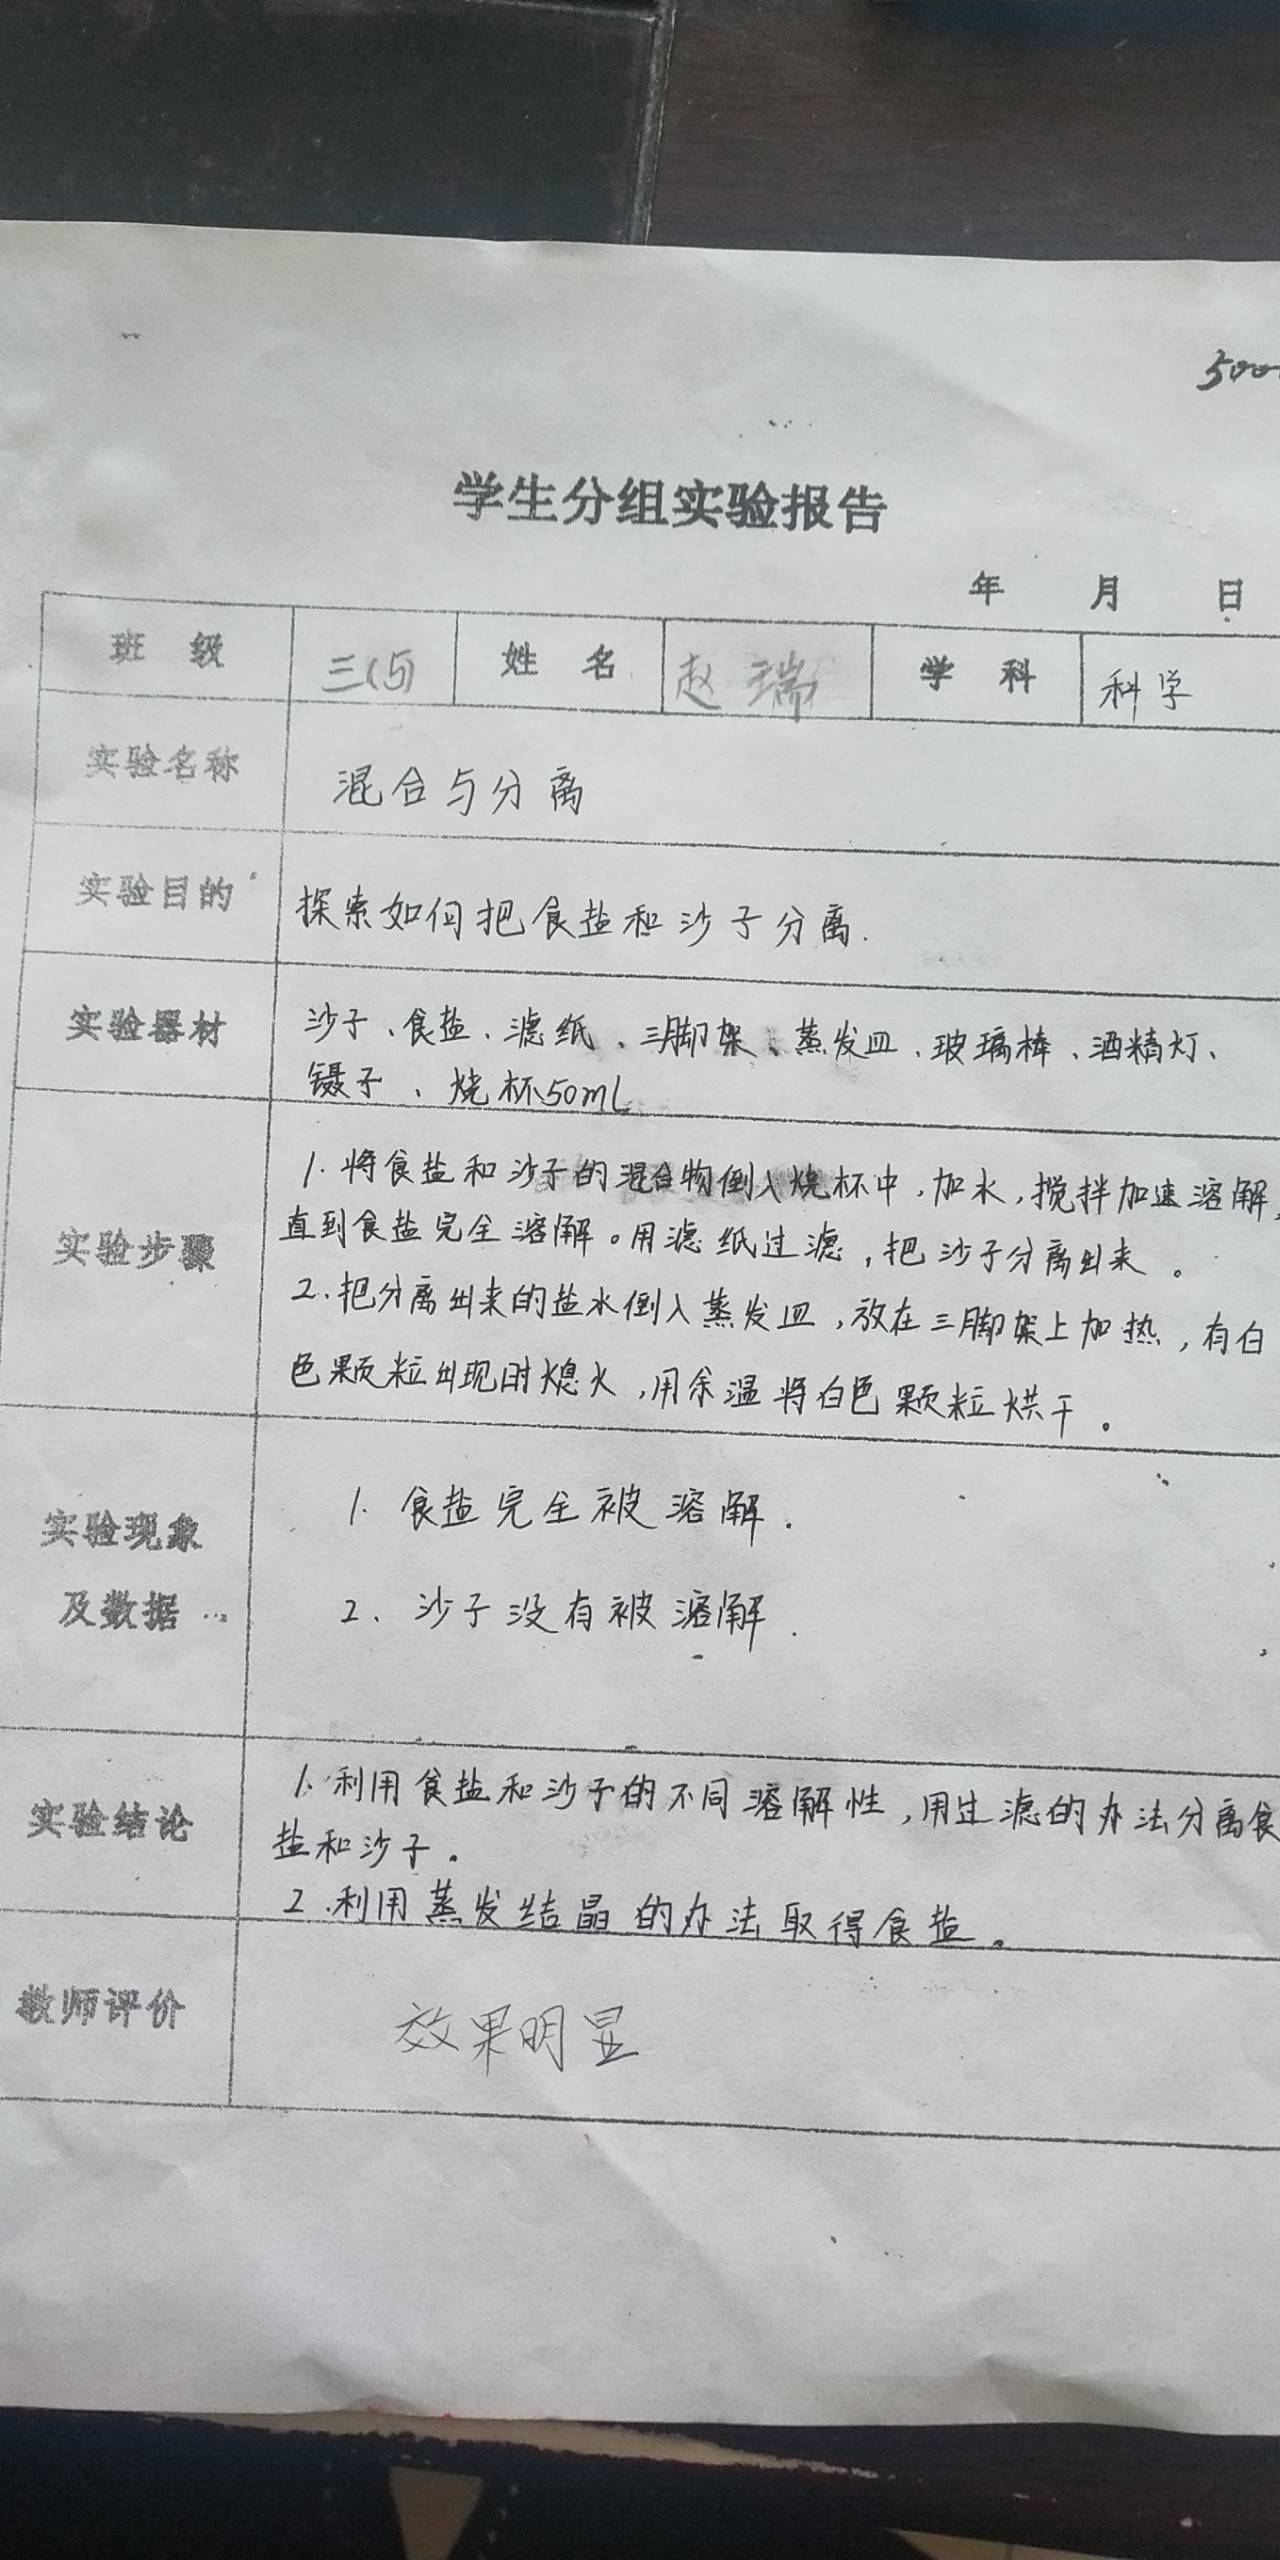 500
学生分组实验报告
年 月 日
班 级 三(5) 姓 名 赵瑞 学 科 科学
实验名称 混合与分离
实验目的 探索如何把食盐和沙子分离.
实验器材 沙子、食盐、滤纸、三脚架、蒸发皿、玻璃棒、酒精灯、
镊子、烧杯50mL
实验步骤
1.将食盐和沙子的混合物倒入烧杯中,加水,搅拌加速溶解,
直到食盐完全溶解。用滤纸过滤,把沙子分离出来。
2.把分离出来的盐水倒入蒸发皿,放在三脚架上加热,有白
色颗粒出现时熄火,用余温将白色颗粒烘干。
实验现象
及数据
1. 食盐完全被溶解.
2. 沙子没有被溶解.
实验结论
1.利用食盐和沙子的不同溶解性,用过滤的办法分离食
盐和沙子.
2.利用蒸发结晶的办法取得食盐。
教师评价 效果明显